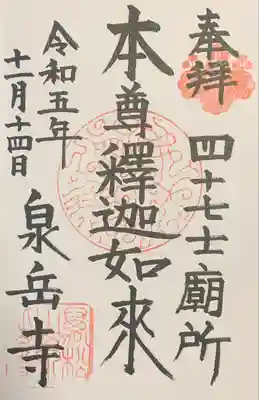 奉拝
四十七士廟所
本尊釋迦如來
令和五年
十一月十四日
泉岳寺